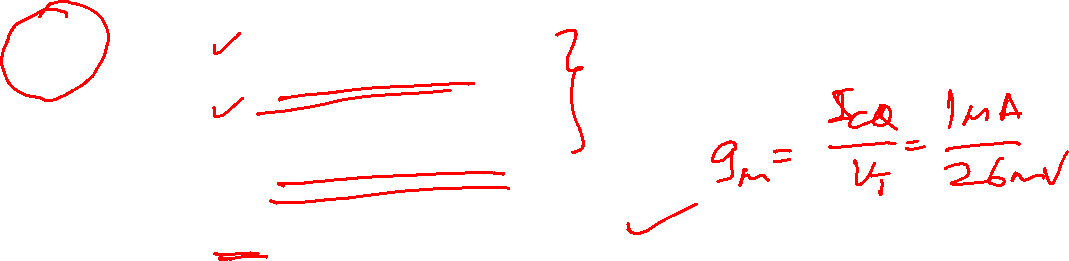 gm = ICQ/VT = 1μA/26mV